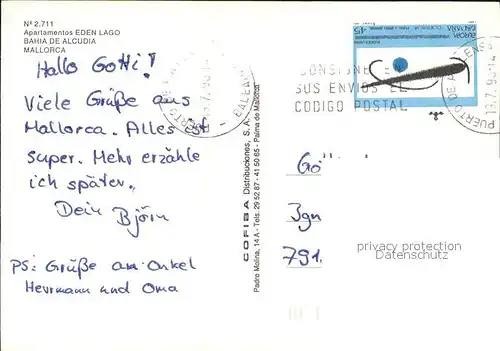 Nº 2.711
Apartamentos EDEN LAGO
BAHIA DE ALCUDIA
MALLORCA
Hallo Gotti!
Viele Grüße aus
Mallorca. Alles ist
super. Mehr erzähle
ich später.
Dein Björn
PS: Grüße an Onkel
Herrmann und Oma
COFIBA Distribuciones, S. A.
Padre Molina, 14 A - Tels. 29 52 87 - 41 50 65 - Palma de Mallorca
EUROPA
ESPAÑA
45
CONSIGNE EN
SUS ENVIOS EL
CODIGO POSTAL
PUERTO DE
13.7.93-14
BALEARES
791
privacy protection
Datenschutz